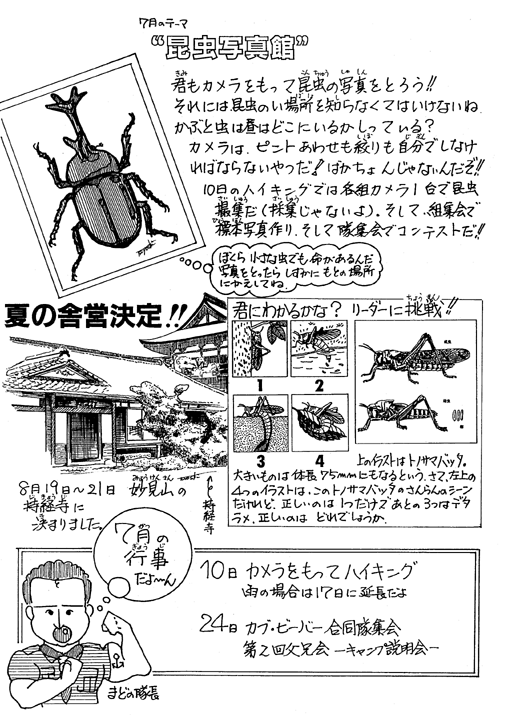 7月のテーマ
“昆虫写真館”
君もカメラをもって昆虫の写真をとろう!!
それには昆虫のい場所を知らなくてはいけないね
かぶと虫は昼はどこにいるかしっている?
カメラは、ピントあわせも絞りも自分でしなけ
ればならないやつだ!ばかちょんじゃないんだぞ!!
10日のハイキングでは各組カメラ1台で昆虫
撮集だ(採集じゃないよ)。そして、組集会で
標本写真作り、そして隊集会でコンテストだ!!
ぼくら 小さな虫でも命があるんだ
写真をとったら しずかに もとの場所
にかえしてね.
夏の舎営決定!!
8月19日~21日 妙見山の
持経寺に
決まりました。
持経寺
君にわかるかな? リーダーに挑戦!!
1
2
3
4
上のイラストはトノサマバッタ。
大きいものは体長75mmにもなるという。さて、左上の
4つのイラストは、このトノサマバッタのさんらんのシーン
だけれど、正しいのは1つだけで あとの3つはデタ
ラメ。正しいのは どれでしょうか.
7月の
行事
だよ~ん
10日 カメラをもってハイキング
雨の場合は17日に延長だよ
24日 カブ・ビーバー合同隊集会
第2回父兄会 ーキャンプ説明会ー
まどの隊長